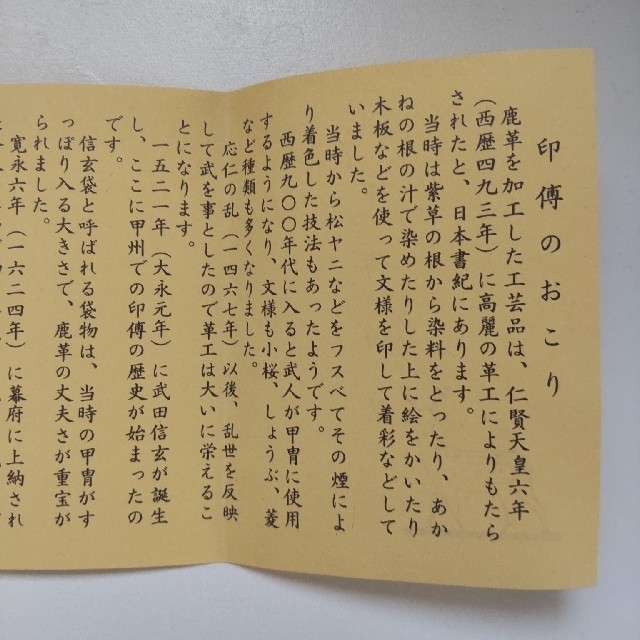 印傳のおこり
鹿革を加工した工芸品は、仁賢天皇六年
(西歴四九三年)に高麗の革工によりもたら
されたと、日本書紀にあります。
当時は紫草の根から染料をとったり、あか
ねの根の汁で染めたりした上に絵をかいたり
木板などを使って文様を印して着彩などして
いました。
当時から松ヤニなどをフスベてその煙によ
り着色した技法もあったようです。
西歴九〇〇年代に入ると武人が甲冑に使用
するようになり、文様も小桜、しょうぶ、菱
など種類も多くなりました。
応仁の乱(一四六七年)以後、乱世を反映
して武を事としたので革工は大いに栄えるこ
とになります。
一五二一年(大永元年)に武田信玄が誕生
し、ここに甲州での印傳の歴史が始まったの
です。
信玄袋と呼ばれる袋物は、当時の甲冑がす
っぽり入る大きさで、鹿革の丈夫さが重宝が
られました。
寛永六年(一六二四年)に幕府に上納され